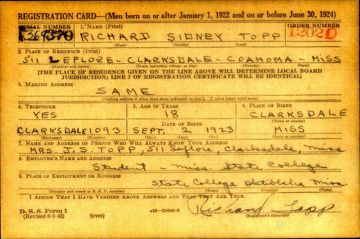 REGISTRATION CARD—(Men born on or after January 1, 1922 and on or before June 30, 1924)
SERIAL NUMBER 1. NAME (Print) ORDER NUMBER
RICHARD SIDNEY TOPP 12020
2. PLACE OF RESIDENCE (Print)
511 LEFLORE - CLARKSDALE - COAHOMA - MISS
[THE PLACE OF RESIDENCE GIVEN ON THE LINE ABOVE WILL DETERMINE LOCAL BOARD
JURISDICTION; LINE 2 OF REGISTRATION CERTIFICATE WILL BE IDENTICAL]
3. MAILING ADDRESS
SAME
4. TELEPHONE 5. AGE IN YEARS 6. PLACE OF BIRTH
YES 18 CLARKSDALE
DATE OF BIRTH
CLARKSDALE 1093 SEPT. 2 1923 MISS
7. NAME AND ADDRESS OF PERSON WHO WILL ALWAYS KNOW YOUR ADDRESS
MRS J.S. TOPP 511 Leflore Clarksdale, Miss
8. EMPLOYER'S NAME AND ADDRESS
Student - Miss. State College
9. PLACE OF EMPLOYMENT OR BUSINESS
State College Oktibbeha Miss.
I AFFIRM THAT I HAVE VERIFIED ABOVE ANSWERS AND THAT THEY ARE TRUE.
D. S. S. Form 1
(Revised 6-9-42)
Richard Topp